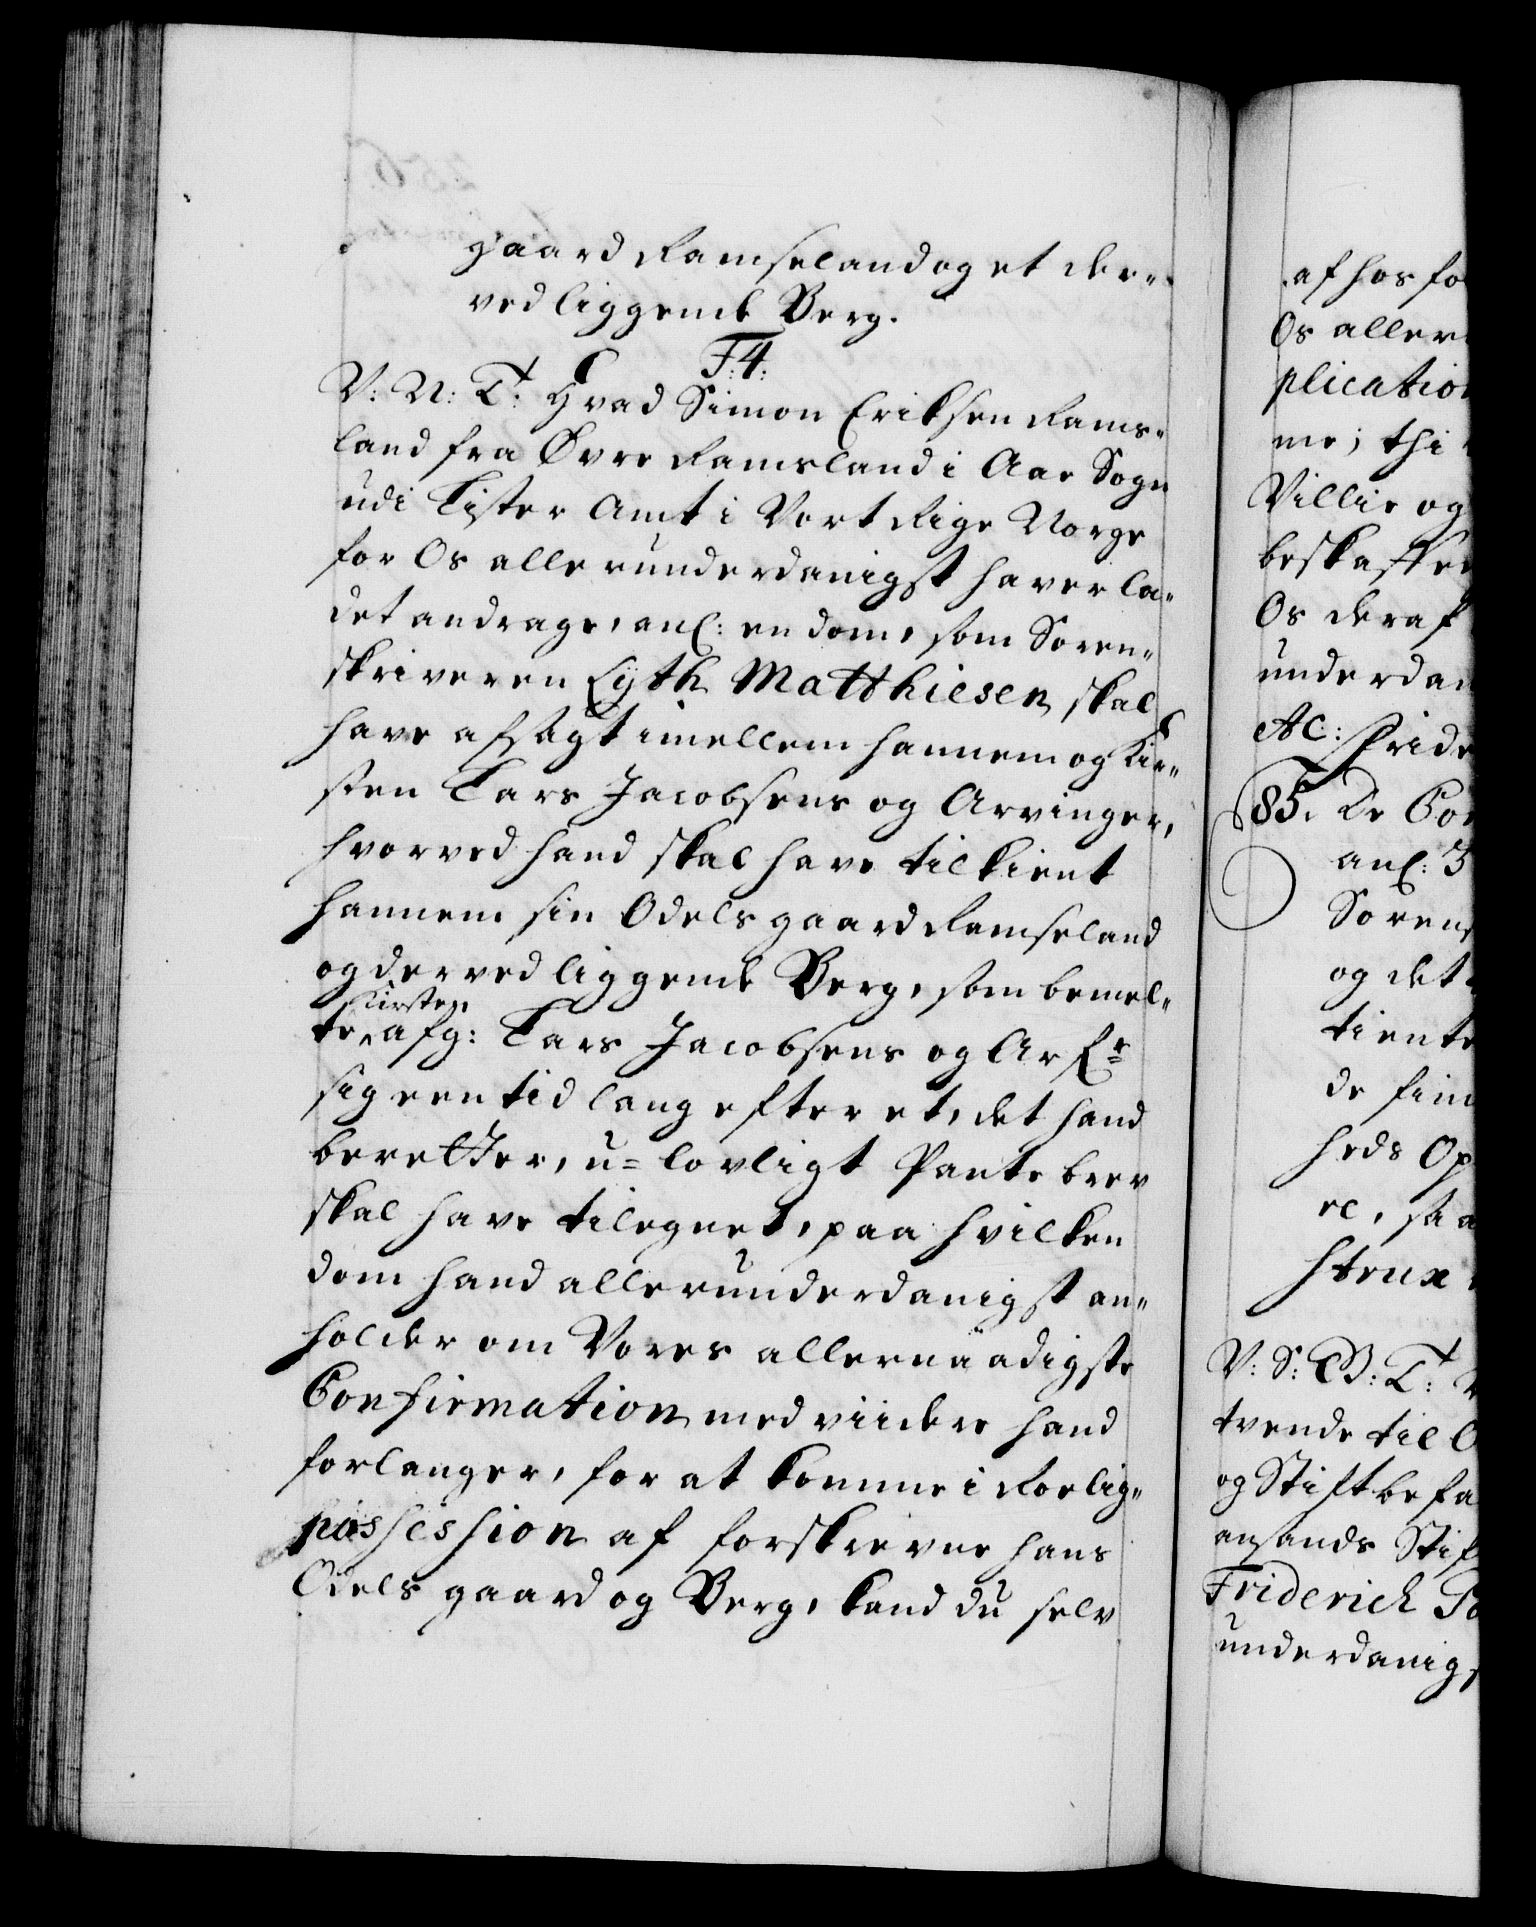 gaard Ramseland og et der-
ved liggende Berg.
F: 4:
V: N: T: Hvad Simon Eriksen Rams-
land fra Øvre Ramsland i Aae Sogn
udi Lister Amt i Vort Rige Norge
for Os allerunderdanigst haver la-
det andrage, anl: en dom, som Soren-
skriveren Lyth Matthiesen skal
have afsagt imellem hannem og Kir-
sten Lars Jacobsens og Arvinger,
hvorved hand skal have tilkient
hannem sin Odels gaard Ramseland
og derved liggende Berg, som bemel-
te Kirsten afg: Lars Jacobsens og Arfr
sig een tid lang efter et, det hand
beretter, u-lovligt Pante brev
skal have tilegnet, paa hvilken
dom hand allerunderdanigst an-
holder om Vores allernaadigste
Confirmation med viidere hand
forlanger, for at komme i Roelig
possession af forskrevne hans
Odels gaard og Berg, kand du selv
af hos fo
Os aller
plication
me; thi
Villie og
beskaffen
Os deraf
underdan
Ac: Fride
85. De Co
anl: 3
Soren
og det
tiente
de fin
heds Op
el, saa
strux
V: S: B: T:
tvende til
og Stiftbefa
ansands Stif
Friderich
underdanigs